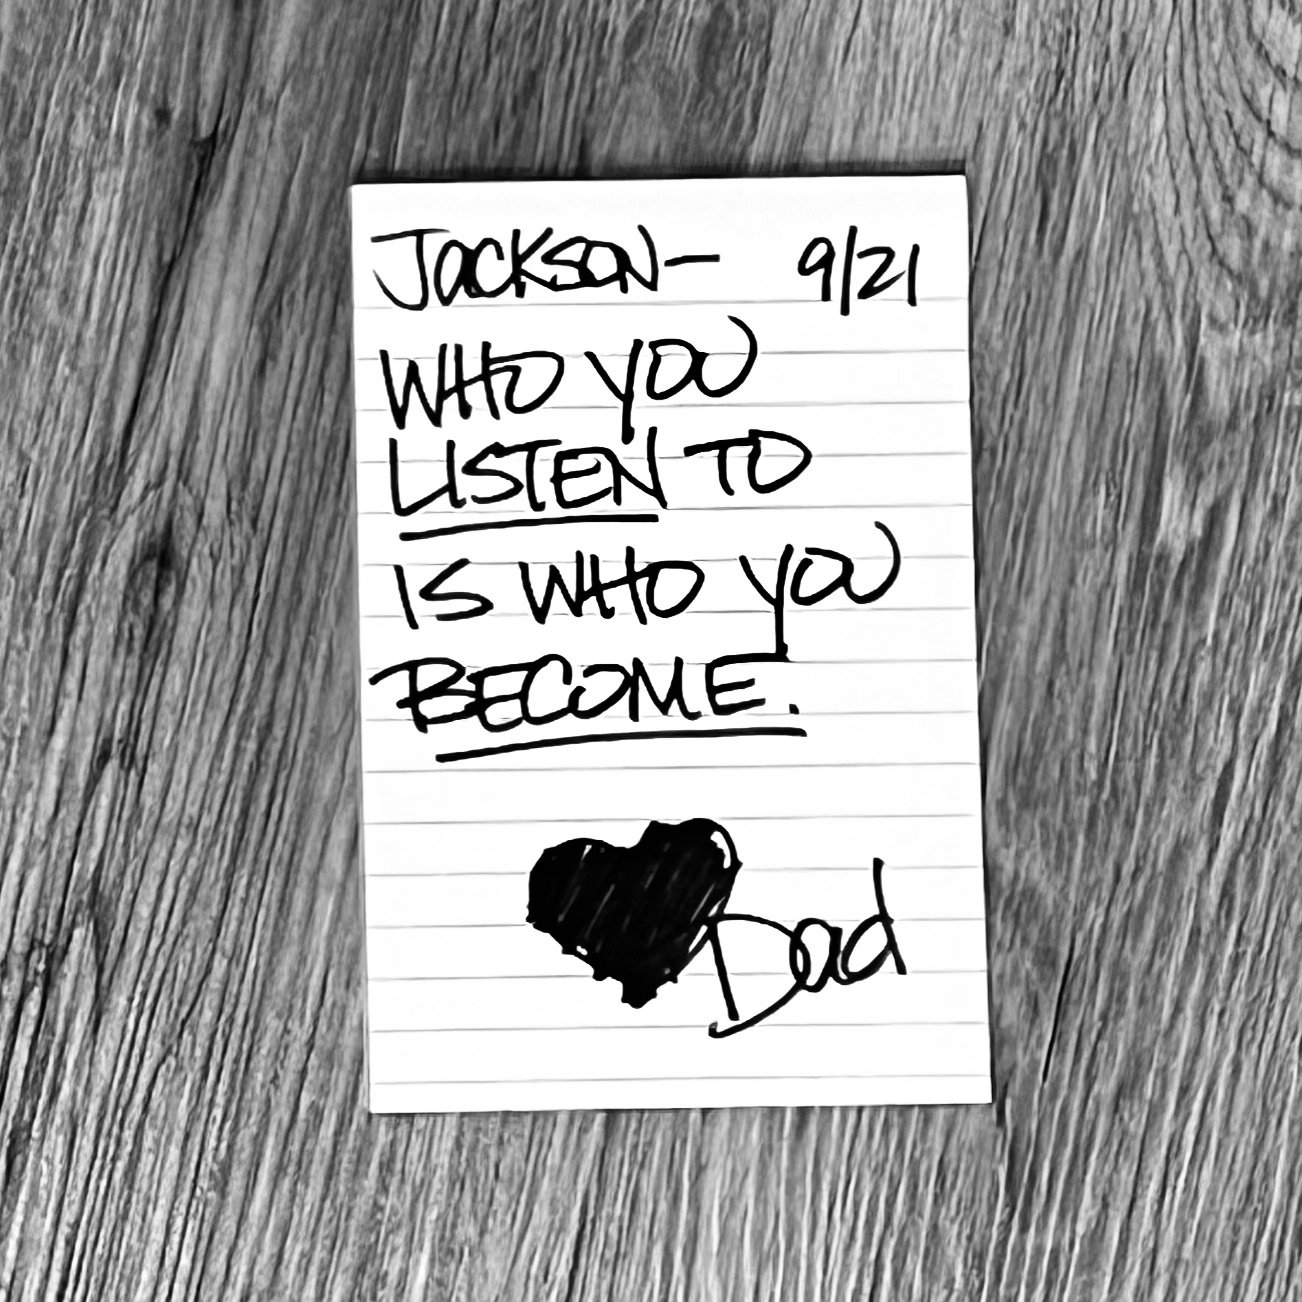 JACKSON— 9/21
WHO YOU
LISTEN TO
IS WHO YOU
BECOME.
Dad